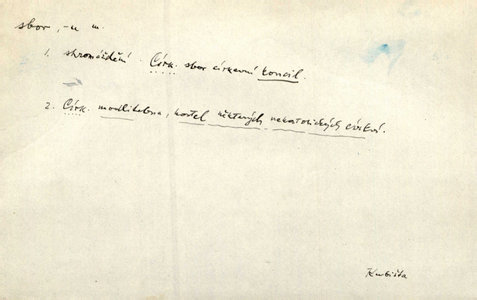 sbor, -u m.
1. shromáždění. Círk. sbor církevní koncil.
2. Círk. modlitebna, kostel některých nekatolických církví.
Kubišta